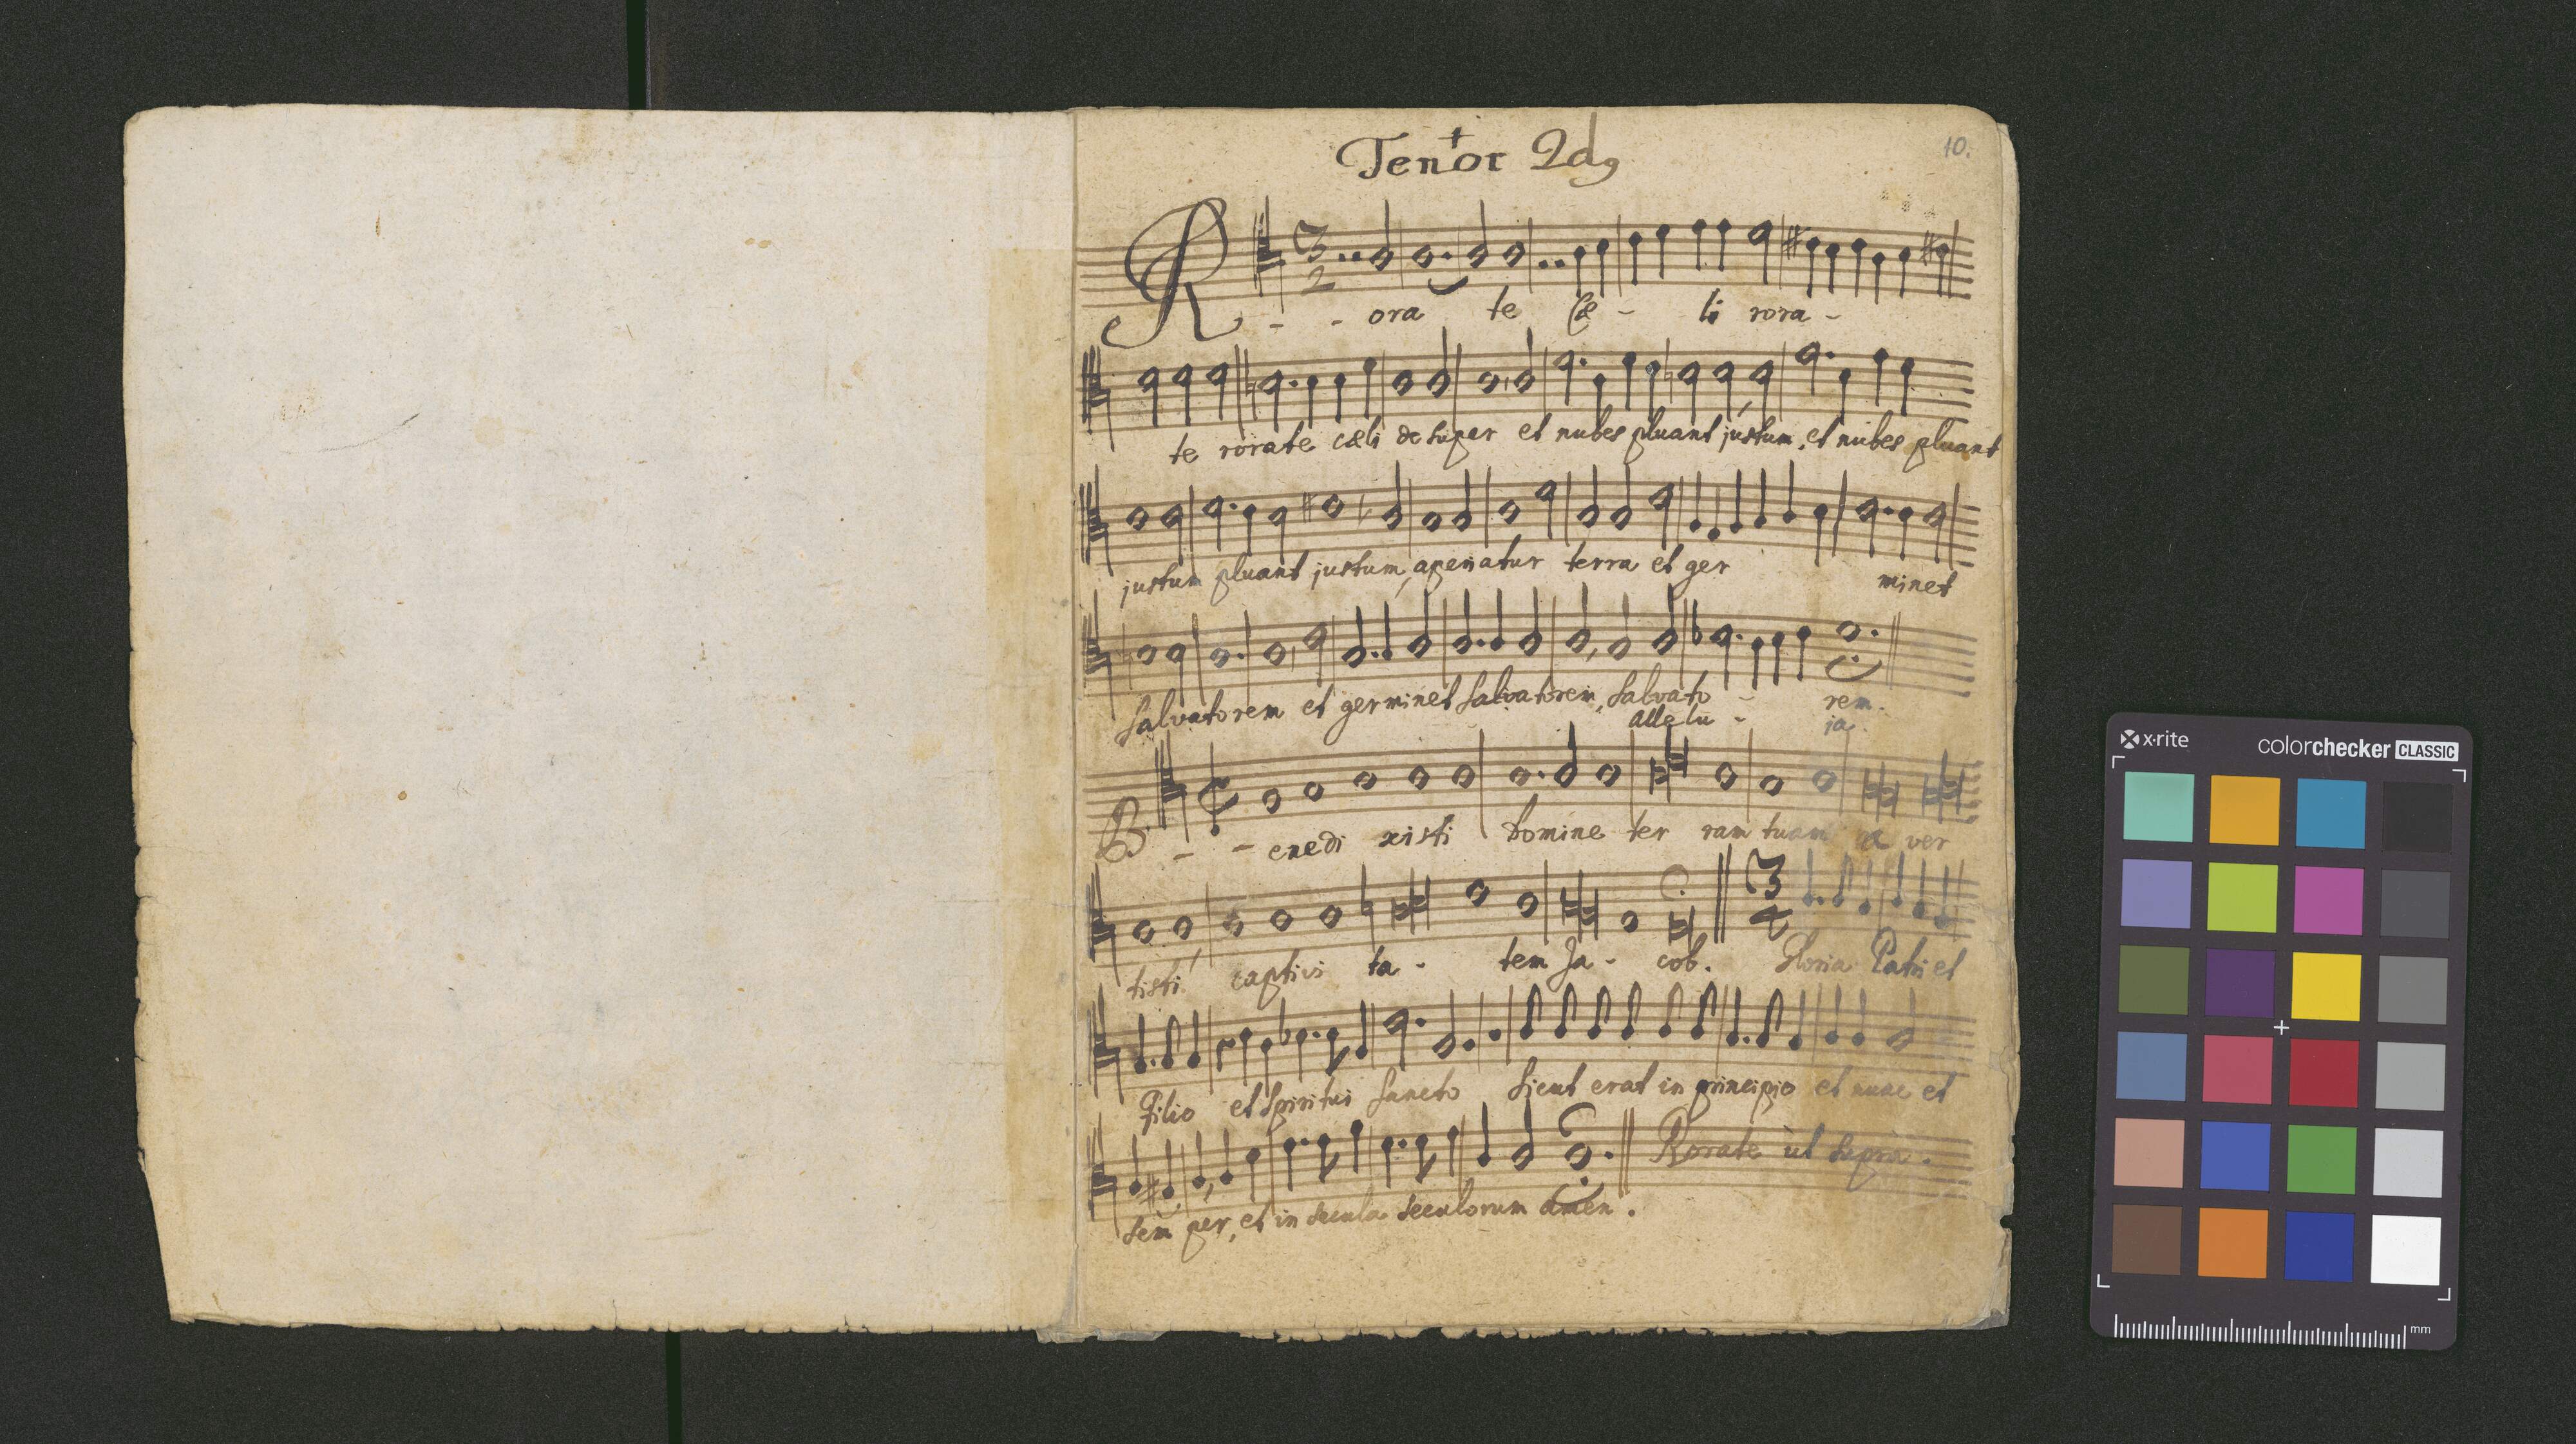 Tenor 2dg
10.
R - - orate Cæ - li rora -
te rorate cæli desuper et nubes pluant justum, et nubes pluant
justum pluant justum, aperiatur terra et ger minet
salvatorem et germinet salvatorem, salvato - rem.
allelu - ja.
B - - enedi xisti Domine ter ram tuam a ver
tisti captivi ta - tem Ja - cob. Gloria Patri et
Filio et Spiritui Sancto Sicut erat in principio et nunc et
sem per, et in secula seculorum amen. Rorate ut supra.
x·rite colorchecker CLASSIC
mm